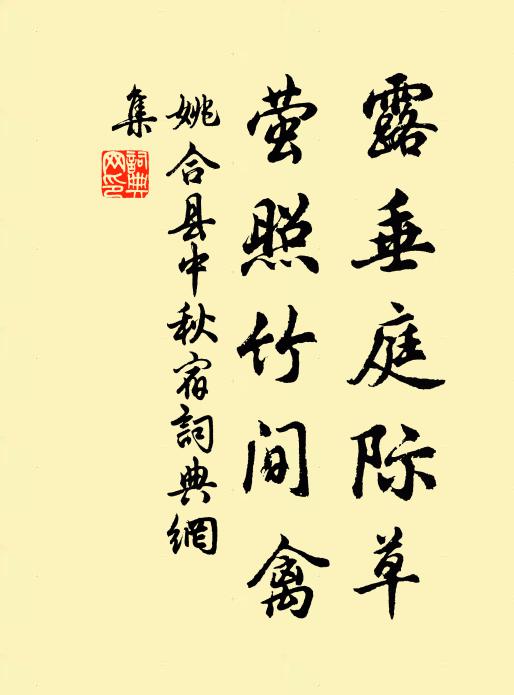 露垂庭际草
萤照竹间禽
姚合县中秋宿詞典網
集
詞典
网印